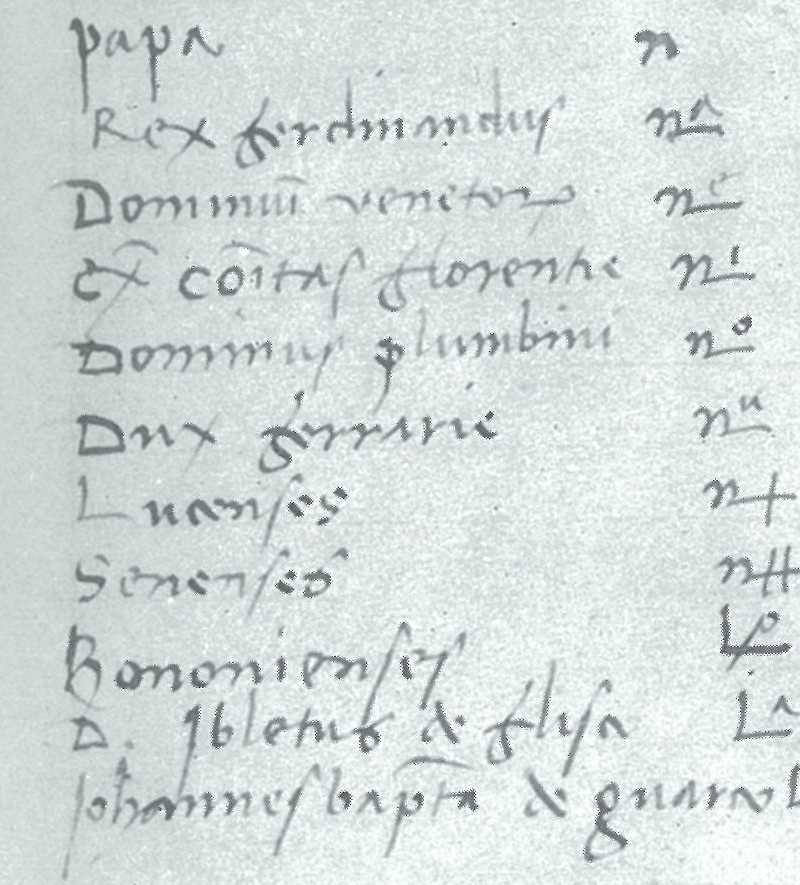 papa n
Rex ferdinandus nª
Dominiū venetoꝝ nᵉ
Exᵃ cōitas florentie nⁱ
Dominus plumbini nº
Dux ferrarie nᵘ
Lucenses n+
Senenses n#
Bononienses
D. Ibletus de flisco Lᵃ
Johannes bapta de